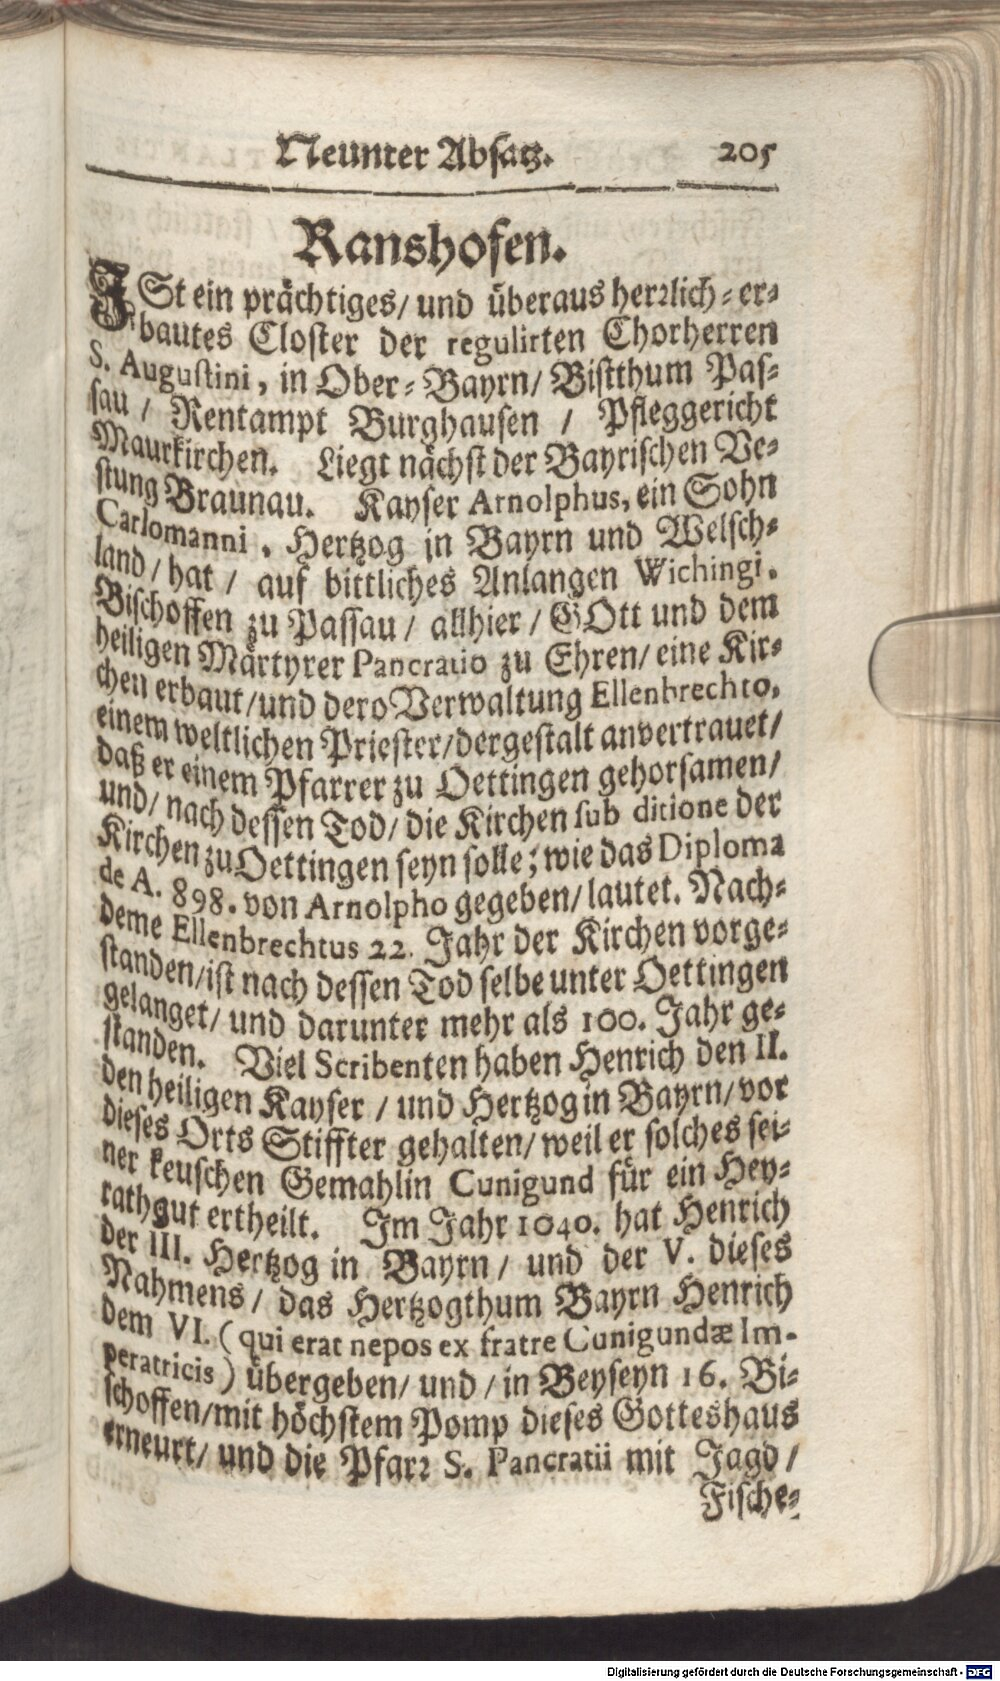 Neunter Absatz. 205
Ranshofen.
ISt ein prächtiges/ und überaus herꝛlich-er-
bautes Closter der regulirten Chorherren
S. Augustini, in Ober-Bayrn/ Bistthum Pas-
sau / Rentampt Burghausen / Pfleggericht
Maurkirchen. Liegt nächst der Bayrischen Ve-
stung Braunau. Kayser Arnolphus, ein Sohn
Carlomanni, Hertzog in Bayrn und Welsch-
land/ hat / auf bittliches Anlangen Wichingi,
Bischoffen zu Passau/ allhier/ GOtt und dem
heiligen Märtyrer Pancratio zu Ehren/ eine Kir-
chen erbaut/und dero Verwaltung Ellenbrechto,
einem weltlichen Priester/dergestalt anvertrauet/
daß er einem Pfarrer zu Oettingen gehorsamen/
und/ nach dessen Tod/ die Kirchen sub ditione der
Kirchen zu Oettingen seyn solle; wie das Diploma
de A. 898. von Arnolpho gegeben/ lautet. Nach-
deme Ellenbrechtus 22. Jahr der Kirchen vorge-
standen/ist nach dessen Tod selbe unter Oettingen
gelanget/ und darunter mehr als 100. Jahr ge-
standen. Viel Scribenten haben Henrich den II.
den heiligen Kayser / und Hertzog in Bayrn/ vor
dieses Orts Stiffter gehalten/ weil er solches sei-
ner keuschen Gemahlin Cunigund für ein Hey-
rathgut ertheilt. Im Jahr 1040. hat Henrich
der III. Hertzog in Bayrn/ und der V. dieses
Nahmens/ das Hertzogthum Bayrn Henrich
dem VI. (qui erat nepos ex fratre Cunigundæ Im-
peratricis) übergeben/ und / in Beyseyn 16. Bi-
schoffen/mit höchstem Pomp dieses Gotteshaus
erneurt/ und die Pfarꝛ S. Pancratii mit Jagd/
Fische-
Digitalisierung gefördert durch die Deutsche Forschungsgemeinschaft - DFG